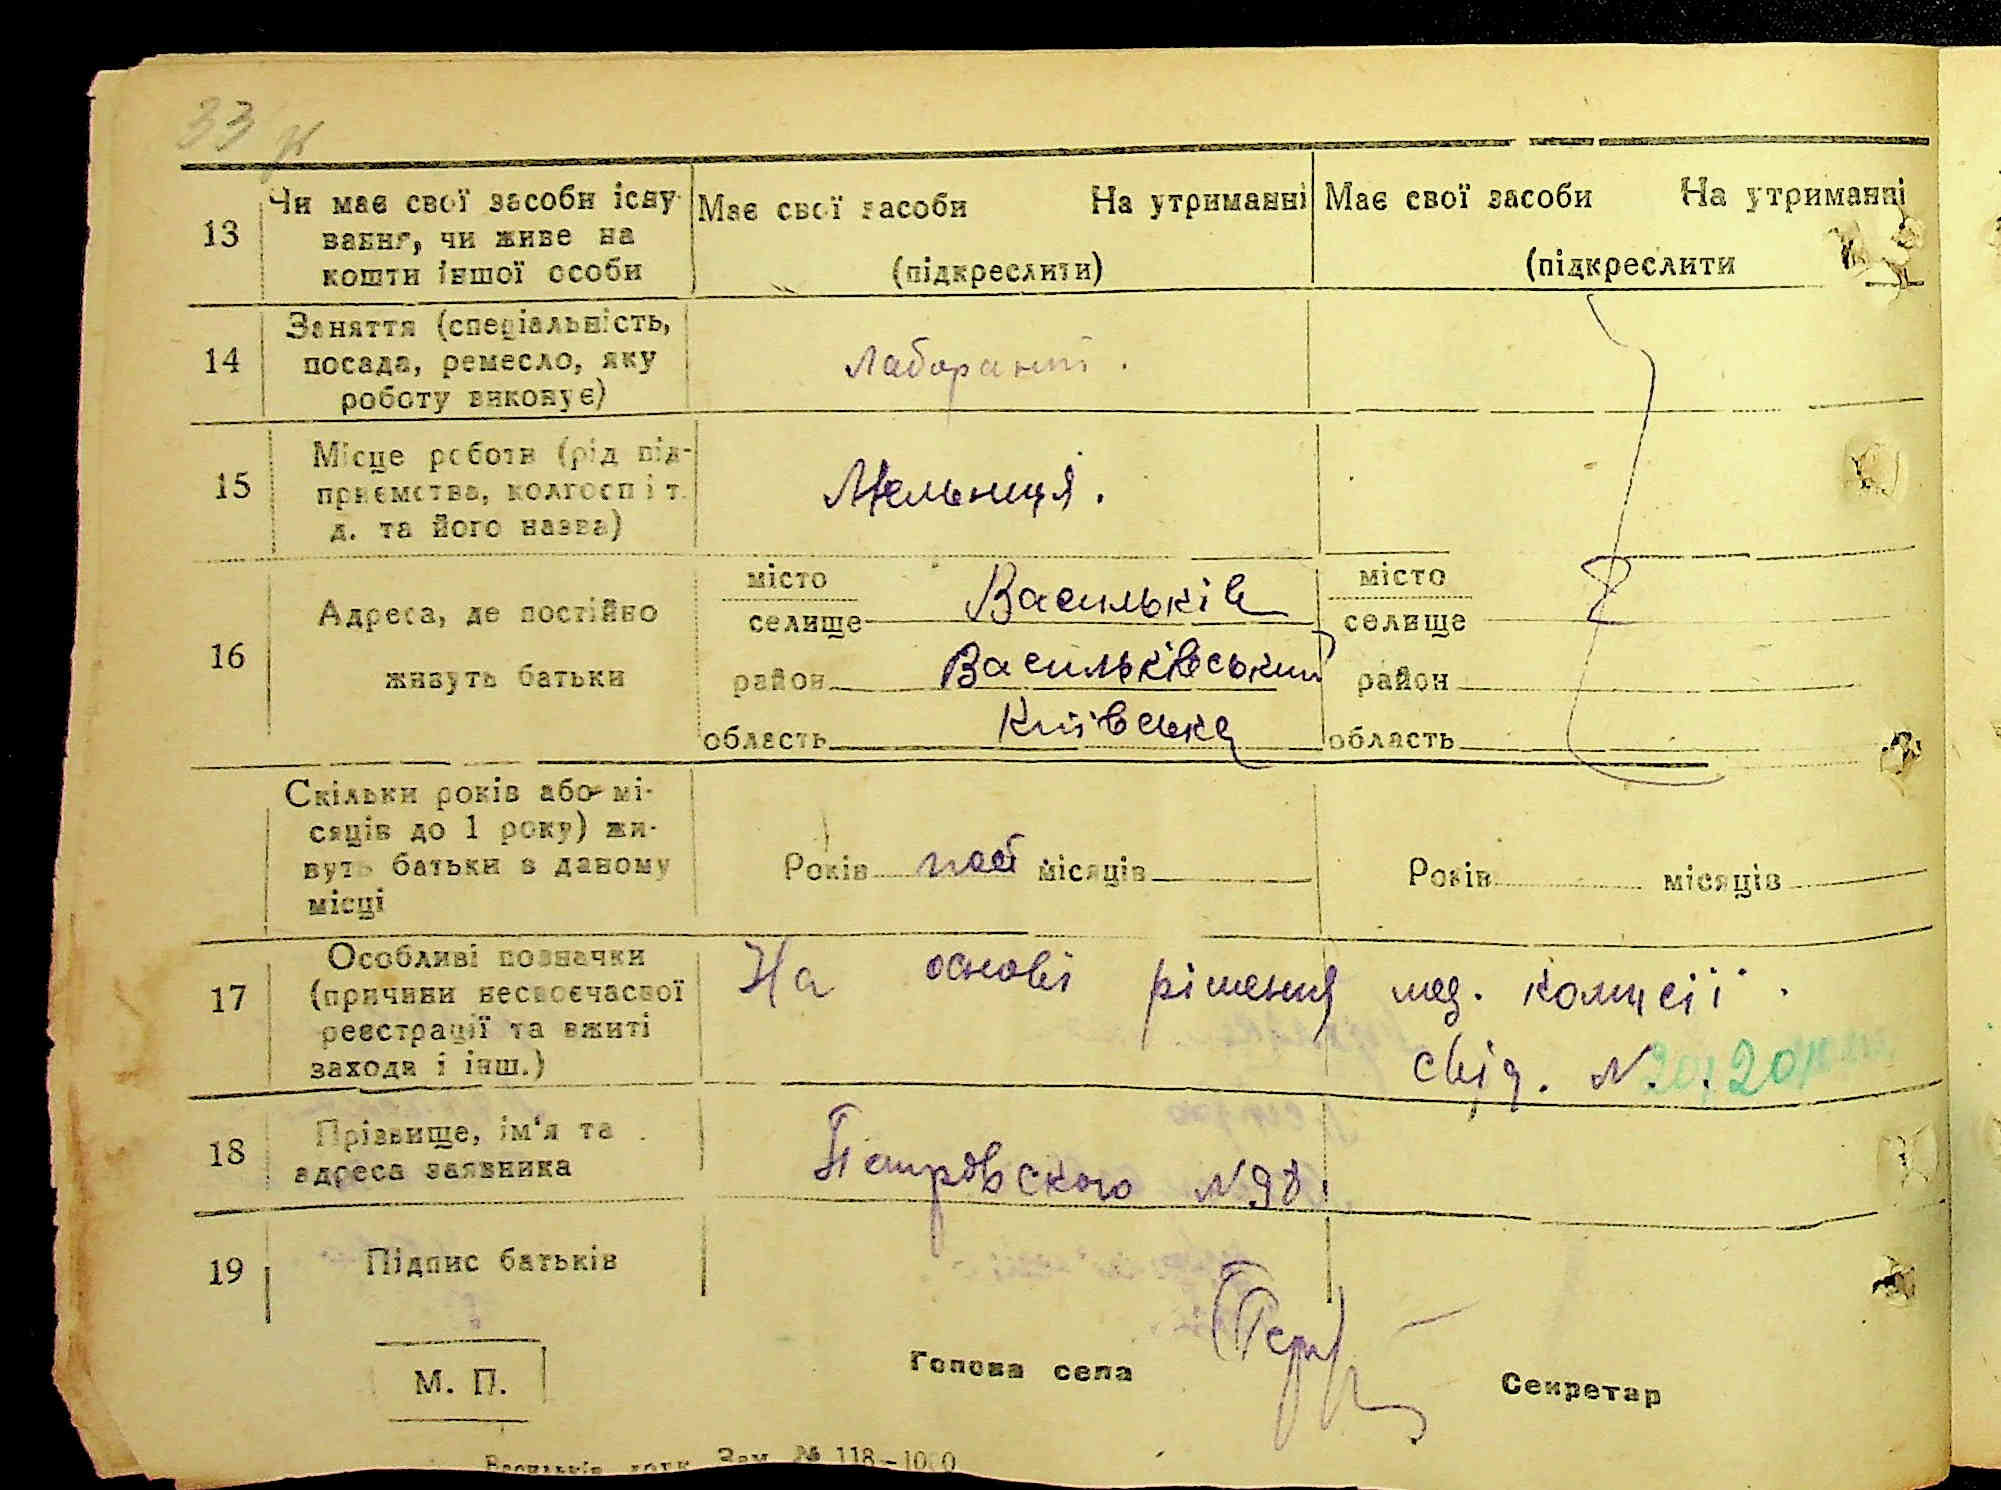 33
13
Чи має свої засоби існу-
вання, чи живе на
кошти іншої особи
Має свої засоби На утриманні
(підкреслити)
Має свої засоби На утриманні
(підкреслити
14
Заняття (спеціальність,
посада, ремесло, яку
роботу виконує)
Лаборант.
15
Місце роботи (рід під-
приємства, колгосп і т.
д. та його назва)
Мельниця.
16
Адреса, де постійно
живуть батьки
місто
селище Васильків
район Васильківський
область Київська
місто
селище
район
область
Скільки років або мі-
сяців до 1 року) жи-
вуть батьки в даному
місці
Років пост місяців
Років місяців
17
Особливі позначки
(причини несвоєчасної
реєстрації та вжиті
заходи і інш.)
На основі рішення мед. комісії.
свід. N. 20
18
Прізвище, ім'я та
адреса заявника
Петровского N 98
19
Підпис батьків
М. П.
Голова села
Секретар
Зам. № 118—1000